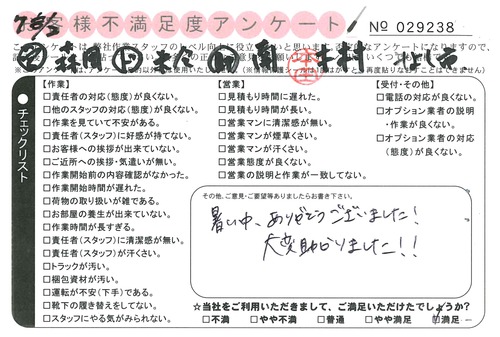 お客様不満足度アンケート
№ 029238
【作業】
□責任者の対応(態度)が良くない。
□他のスタッフの対応(態度)が良くない。
□作業を見ていて不安がある。
□責任者(スタッフ)に好感が持てない。
□お客様への挨拶が出来ていない。
□ご近所への挨拶・気遣いが無い。
□作業開始前の内容確認がなかった。
□作業開始時間が遅れた。
□荷物の取り扱いが雑である。
□お部屋の養生が出来ていない。
□作業時間が長すぎる。
□責任者(スタッフ)に清潔感が無い。
□責任者(スタッフ)が汗くさい。
□トラックが汚い。
□梱包資材が汚い。
□運転が不安(下手)である。
□靴下の履き替えをしてない。
□スタッフにやる気がみられない。
チェックリスト
【営業】
□見積もり時間に遅れた。
□見積もり時間が長い。
□営業マンに清潔感が無い。
□営業マンが煙草くさい。
□営業マンが汗くさい。
□営業態度が良くない。
□営業の説明と作業が一致してない。
【受付・その他】
□電話の対応が良くない。
□オプション業者の説明
・作業が良くない。
□オプション業者の対応
(態度)が良くない。
その他、ご意見・ご要望等ありましたらお書き下さい。
暑い中、ありがとうございました!
大変助かりました!!
☆当社をご利用いただきまして、ご満足いただけたでしょうか?
□不満 □やや不満 □普通 □やや満足 □満足